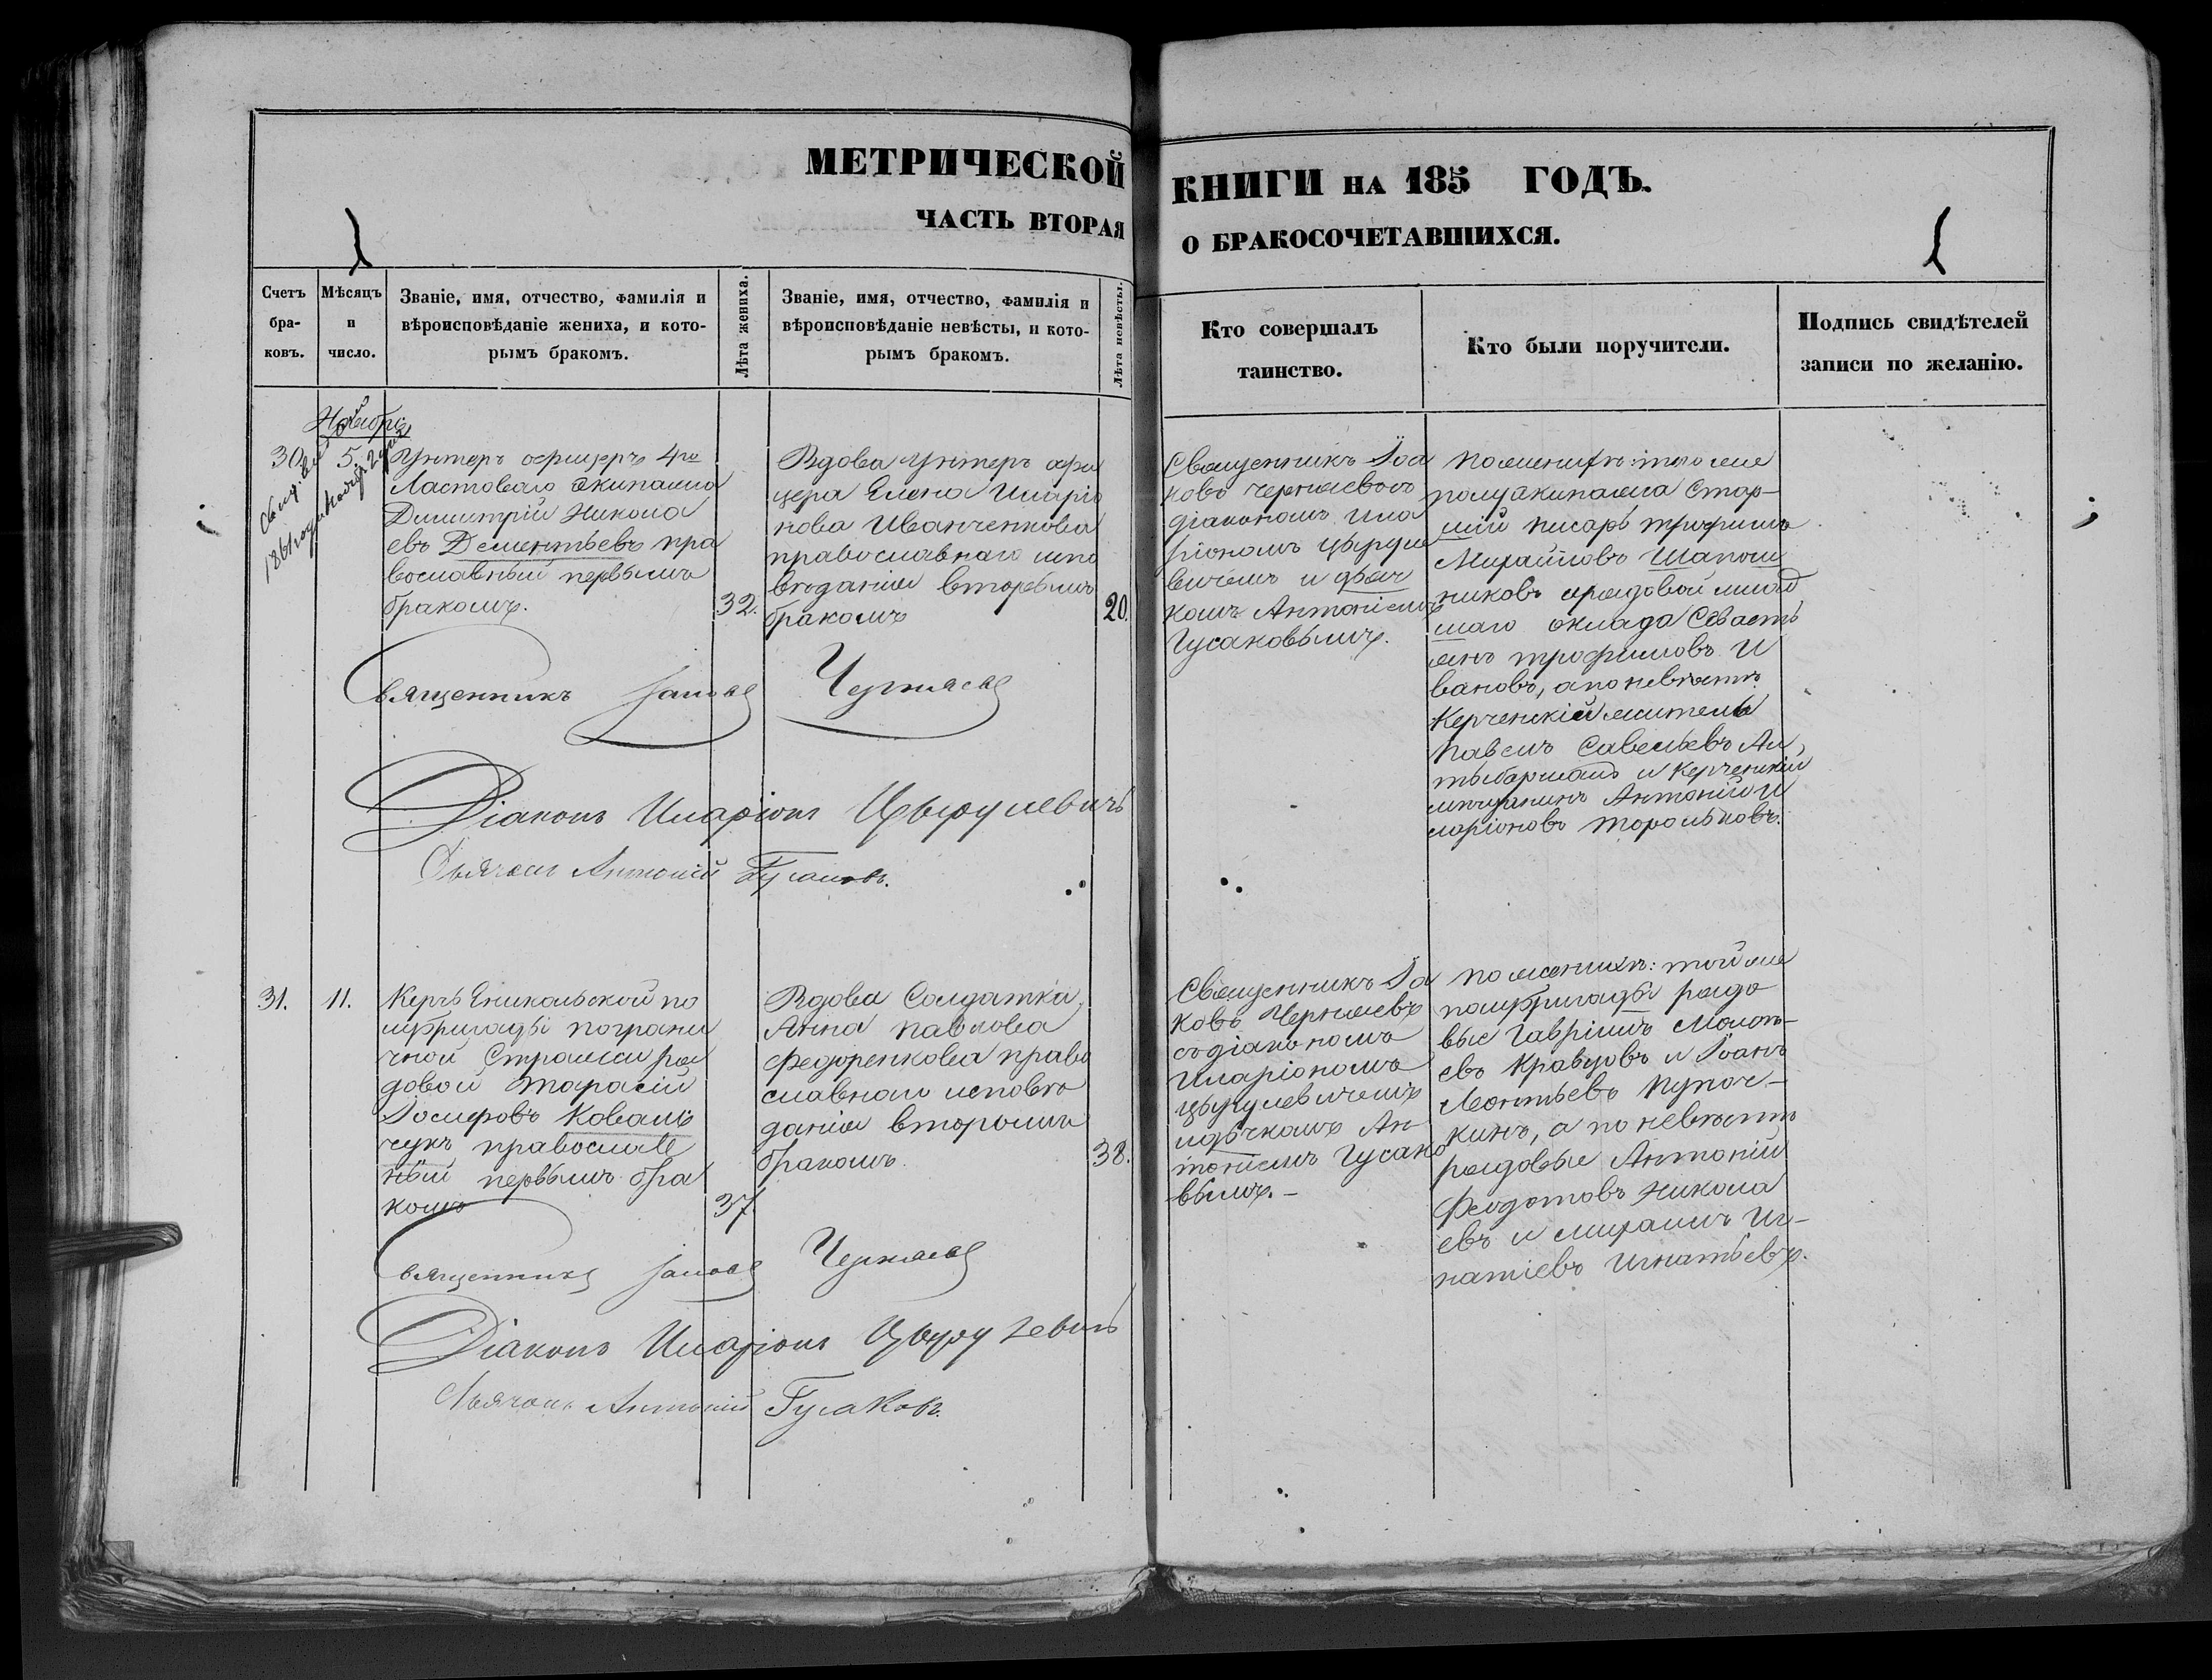 МЕТРИЧЕСКОЙ КНИГИ НА 185 ГОДЪ.
ЧАСТЬ ВТОРАЯ О БРАКОСОЧЕТАВШИХСЯ.
Счетъ бра-ковъ.
Мѣсяцъ и число.
Званіе, имя, отчество, фамилія и
вѣроисповѣданіе жениха, и кото-
рымъ бракомъ.
Лѣта жениха.
Званіе, имя, отчество, фамилія и
вѣроисповѣданіе невѣсты, и кото-
рымъ бракомъ.
Лѣта невѣсты.
Кто совершалъ
таинство.
Кто были поручители.
Подпись свидѣтелей
записи по желанію.
Ноября
30.
5.
1861 года
Унтеръ офицеръ 4го
Ластоваго Экипажа
Димитрій Никола
евъ Дементьевъ пра
вославный первымъ
бракомъ.
32.
Вдова унтеръ офи
цера Елена Иларіо
нова Иванченкова
православнаго испо
вѣданія вторымъ
бракомъ
20.
Священникъ Іоа
ковъ Черняевъ
діакономъ Ила
ріономъ Цыруле
вичемъ и дьяч
комъ Антоніемъ
Гусаковымъ.
по женихѣ: того же
полуэкипажа Стар-
шій писарь Трифилъ
Михайловъ Шапош
никовъ и рядовой млад
шаго оклада Севасть
янъ Трофимовъ И
вановъ, а по невѣстѣ
Керченскій житель
Павелъ Савельевъ
и Керченскій
мѣщанинъ Антоній И
ларіоновъ Торольковъ.
Священникъ Іаковъ Черняевъ
Діаконъ Иларіонъ Цырулевичъ
Дьячокъ Антоній Гусаковъ.
31.
11.
Керчь Еникольской по
лубригады погранич
чной Стражи ря
довой Тарасій
Іосифовъ Коваль
чукъ православ
ный первымъ бра
комъ
37
Вдова Солдатка
Анна Павлова
Федоренкова право
славнаго исповѣ
данія вторымъ
бракомъ.
38.
Священникъ Іа
ковъ Черняевъ
съ діакономъ
Иларіономъ
Цырулевичемъ
и дьячкомъ Ан-
тоніемъ Гусако
вымъ. -
по женихѣ: той же
полубригады рядо
вые Гавріилъ
евъ Кравцовъ и Іоанъ
Леонтьевъ Пупоч-
кинъ, а по невѣстѣ
рядовые Антоній
Феодотовъ Никола
евъ и Михаилъ Иг-
натіевъ Игнатьевъ.
Священникъ Іаковъ Черняевъ
Діаконъ Иларіонъ Цырулевичъ
Дьячокъ Антоній Гусаковъ.